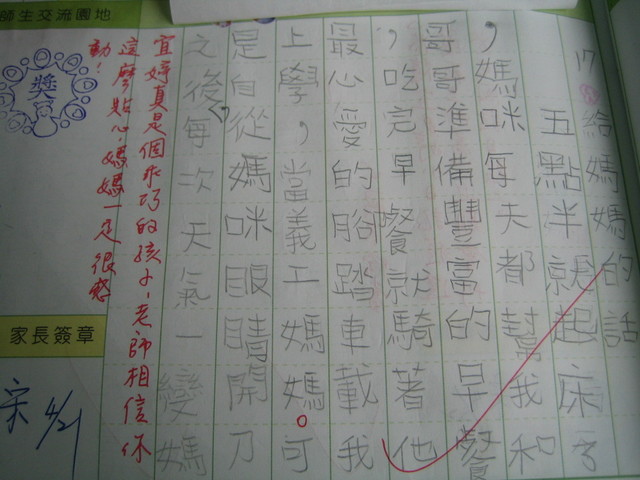 17 給媽媽的話
五點半就起床了
，媽咪每天都幫我和
哥哥準備豐富的早餐
，吃完早餐就騎著他
最心愛的腳踏車載我
上學，當義工媽媽。可
是自從媽咪眼睛開刀
之後，每次天氣一變媽
宜婷真是個乖巧的孩子，老師相信你
這麼貼心，媽媽一定很感
動！
師生交流園地
獎
家長簽章
宋 4/21